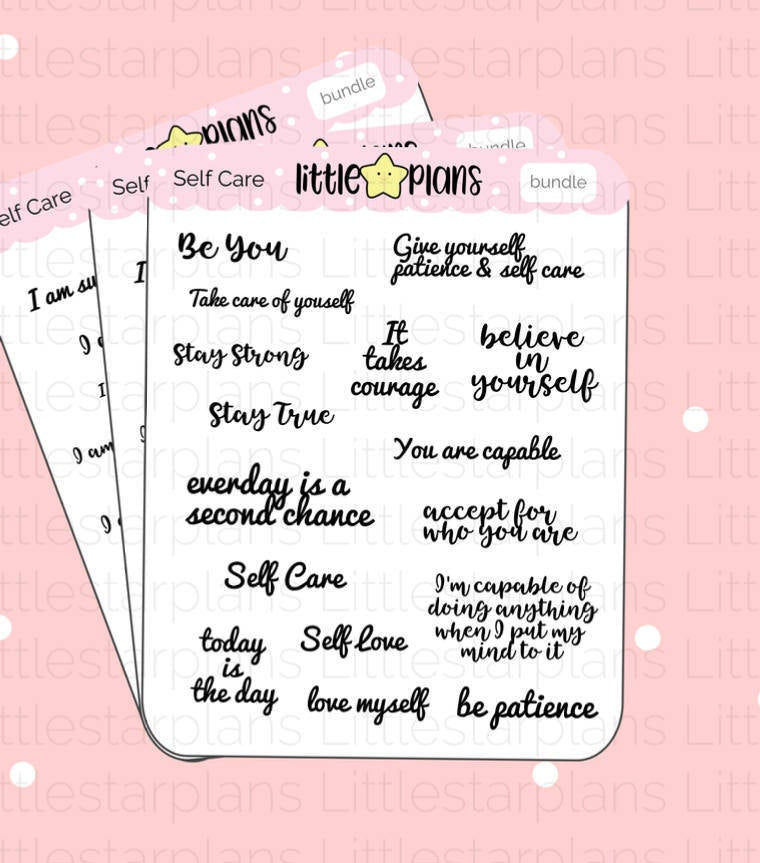 bundle
plans
bundle
elf Care
Self
Self Care
little plans
bundle
Be You
Give yourself
patience & self care
Take care of youself
It
takes
courage
believe
in
yourself
Stay Strong
Stay True
You are capable
everday is a
second chance
accept for
who you are
Self Care
I'm capable of
doing anything
when I put my
mind to it
today
is
the day
Self Love
love myself
be patience
I am su
I
I am
Littlestarplans